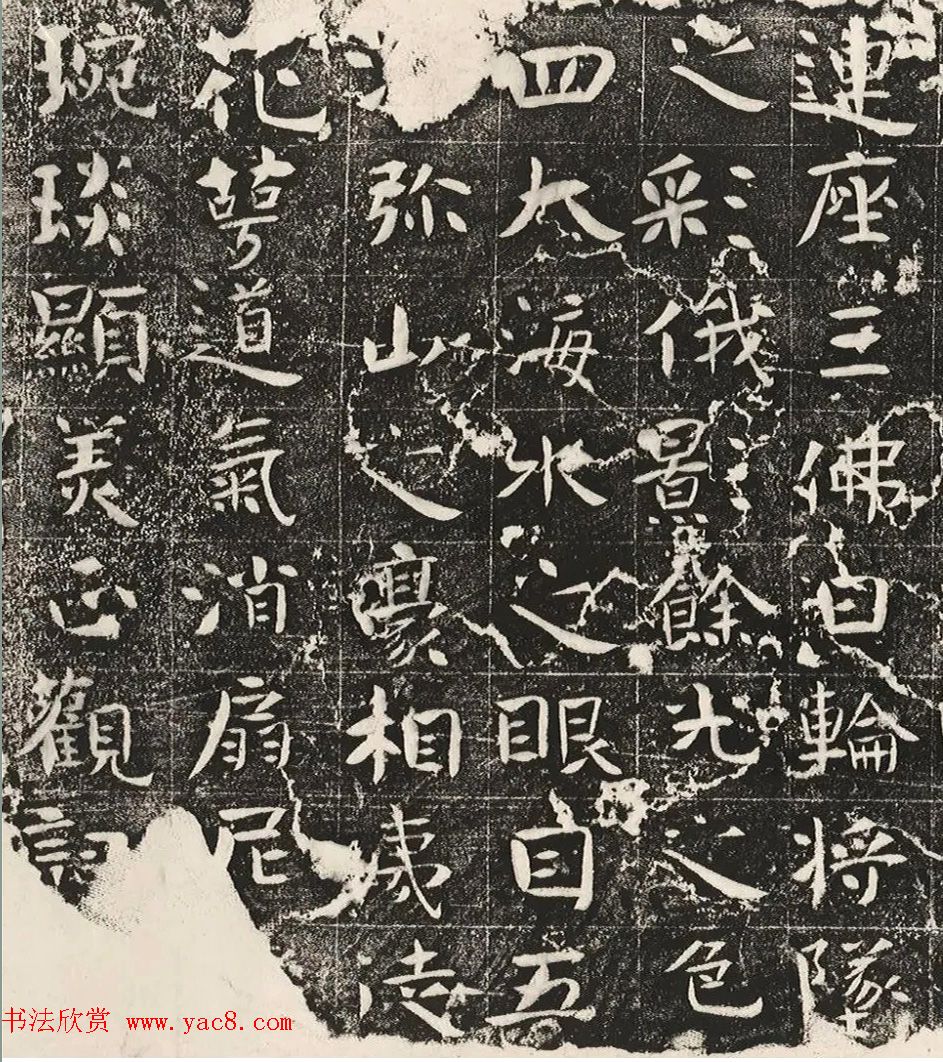 連座三佛白輪将墜
之彩俄餘光之色
四大海水之眼目五
弥山之豪相夷
花萼道氣消扇尼
琬琰顯美正觀
书法欣赏 www.yac8.com